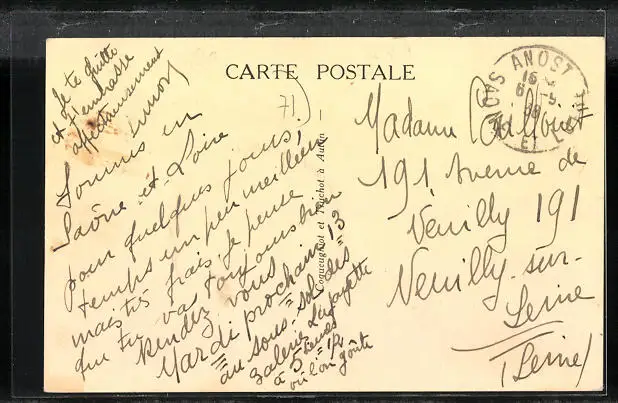 CARTE POSTALE
Je te quitte
et t'embrasse
affectueusement
Sommes en
Saône-et-Loire
pour quelques jours,
temps un peu meilleur
mais très frais, Je pense
que tu vas toujours bien
Rendez vous
Mardi prochain 13
au sous-sol des
Galerie Lafayette
à 5 heures 1/2
où l'on goûte
et Truchot à Autun
Madame
191 Avenue de
Neuilly 191
Neuilly-sur-
Seine
(Seine)
ANOST
SAONE ET LOIRE